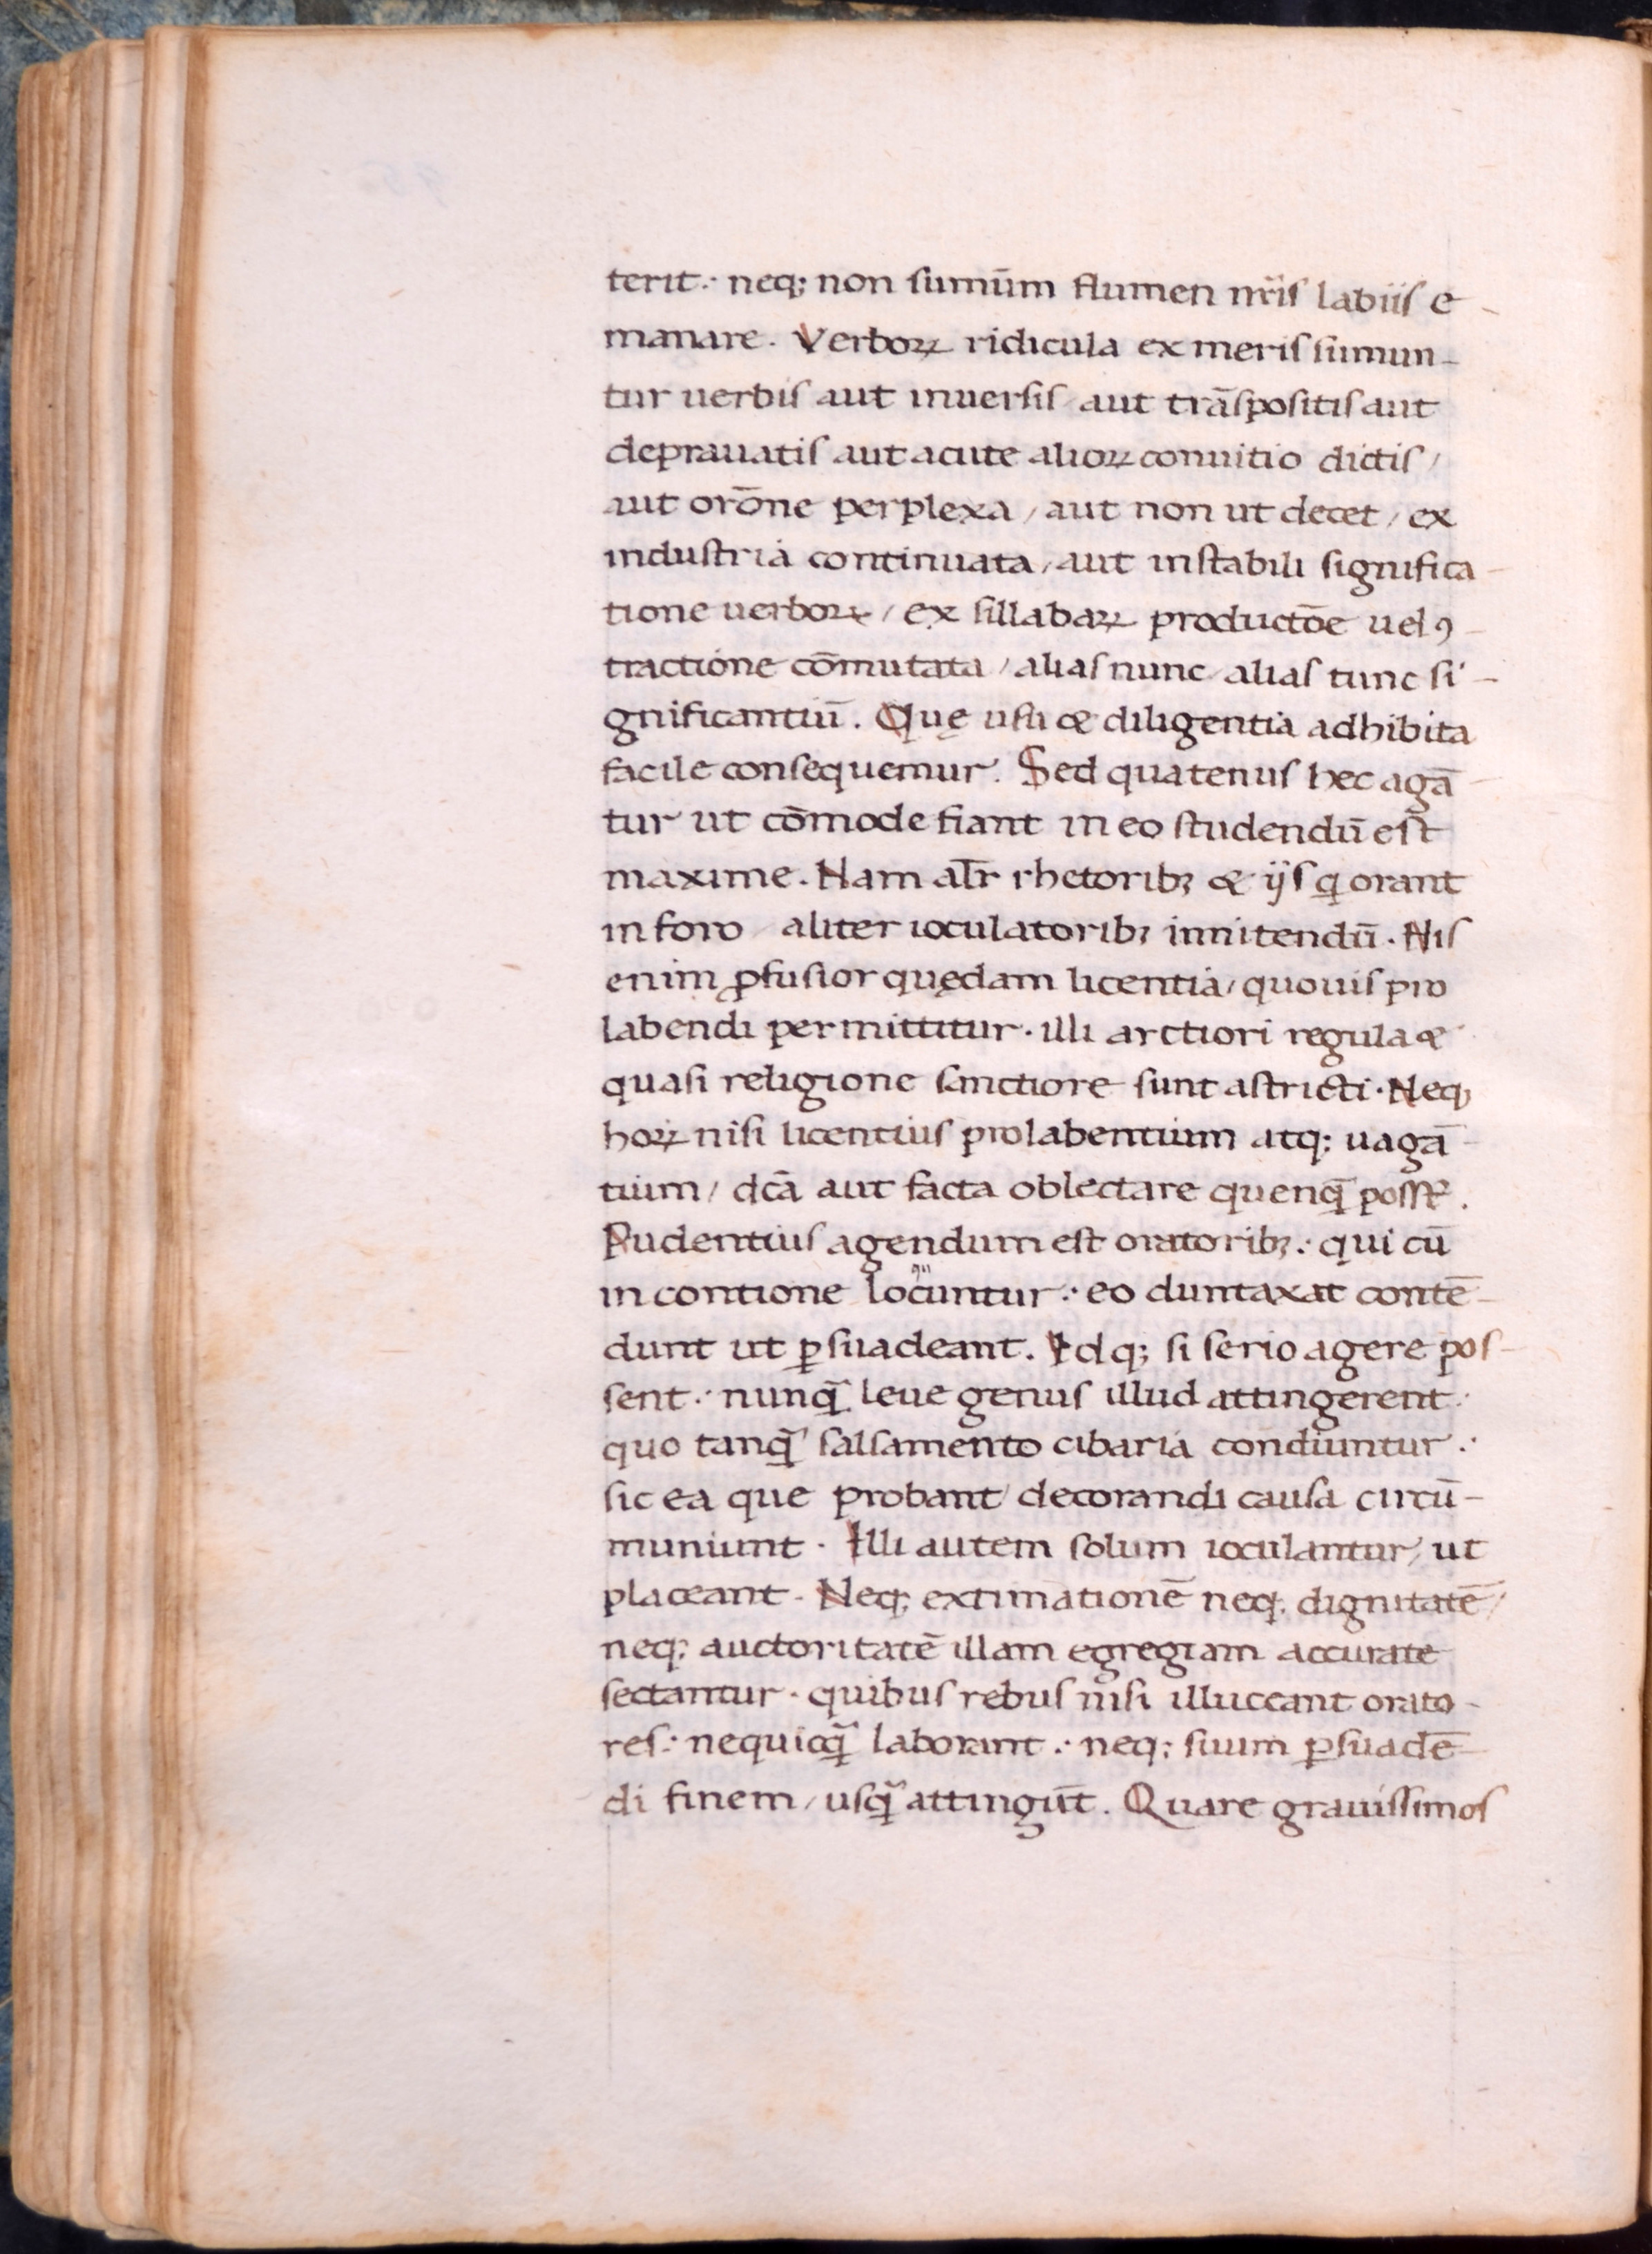 terit: neq; non sumūm flumen nr̄is labiis e-
manare. Verboꝝ ridicula ex meris sumun-
tur uerbis aut inuersis aut trāspositis aut
deprauatis aut acute alioꝝ conuitio dictis /
aut orōne perplexa / aut non ut decet / ex
industria continuata / aut instabili significa-
tione uerboꝝ / ex sillabaꝝ productōe uel ꝯ-
tractione cōmutata / alias nunc alias tunc si-
gnificantiū. Quę usu & diligentia adhibita
facile consequemur. Sed quatenus hec agā-
tur ut cōmode fiant in eo studendū est
maxime. Nam alr̄ rhetoribꝫ & ijs qi orant
in foro aliter ioculatoribꝫ innitendū. Nis
enim ꝓfusior quędam licentia / quouis pro
labendi permittitur. illi arctiori regula &
quasi religione sanctiore sunt astricti. Neq;
hoꝝ nisi licentius prolabentium atq; uagā-
tium / dc̄a aut facta oblectare quenq̄ possꝫ.
Pudentius agendum est oratoribꝫ: qui cū
in contione locquuntur: eo duntaxat contē-
dunt ut ꝑsuadeant. Idq; si serio agere pos-
sent: nunq̄ leue genus illud attingerent:
quo tanq̄ salsamento cibaria condiuntur:
sic ea que probant decorandi causa circū-
muniunt. Illi autem solum ioculantur / ut
placeant. Neq; extimationē neq; dignitatē /
neq; auctoritatē illam egregiam accurate
sectantur. quibus rebus nisi illuceant orato-
res: nequicq̄ laborant: neq; suum ꝑsuadē-
di finem / usq̄ attingūt. Quare grauissimos